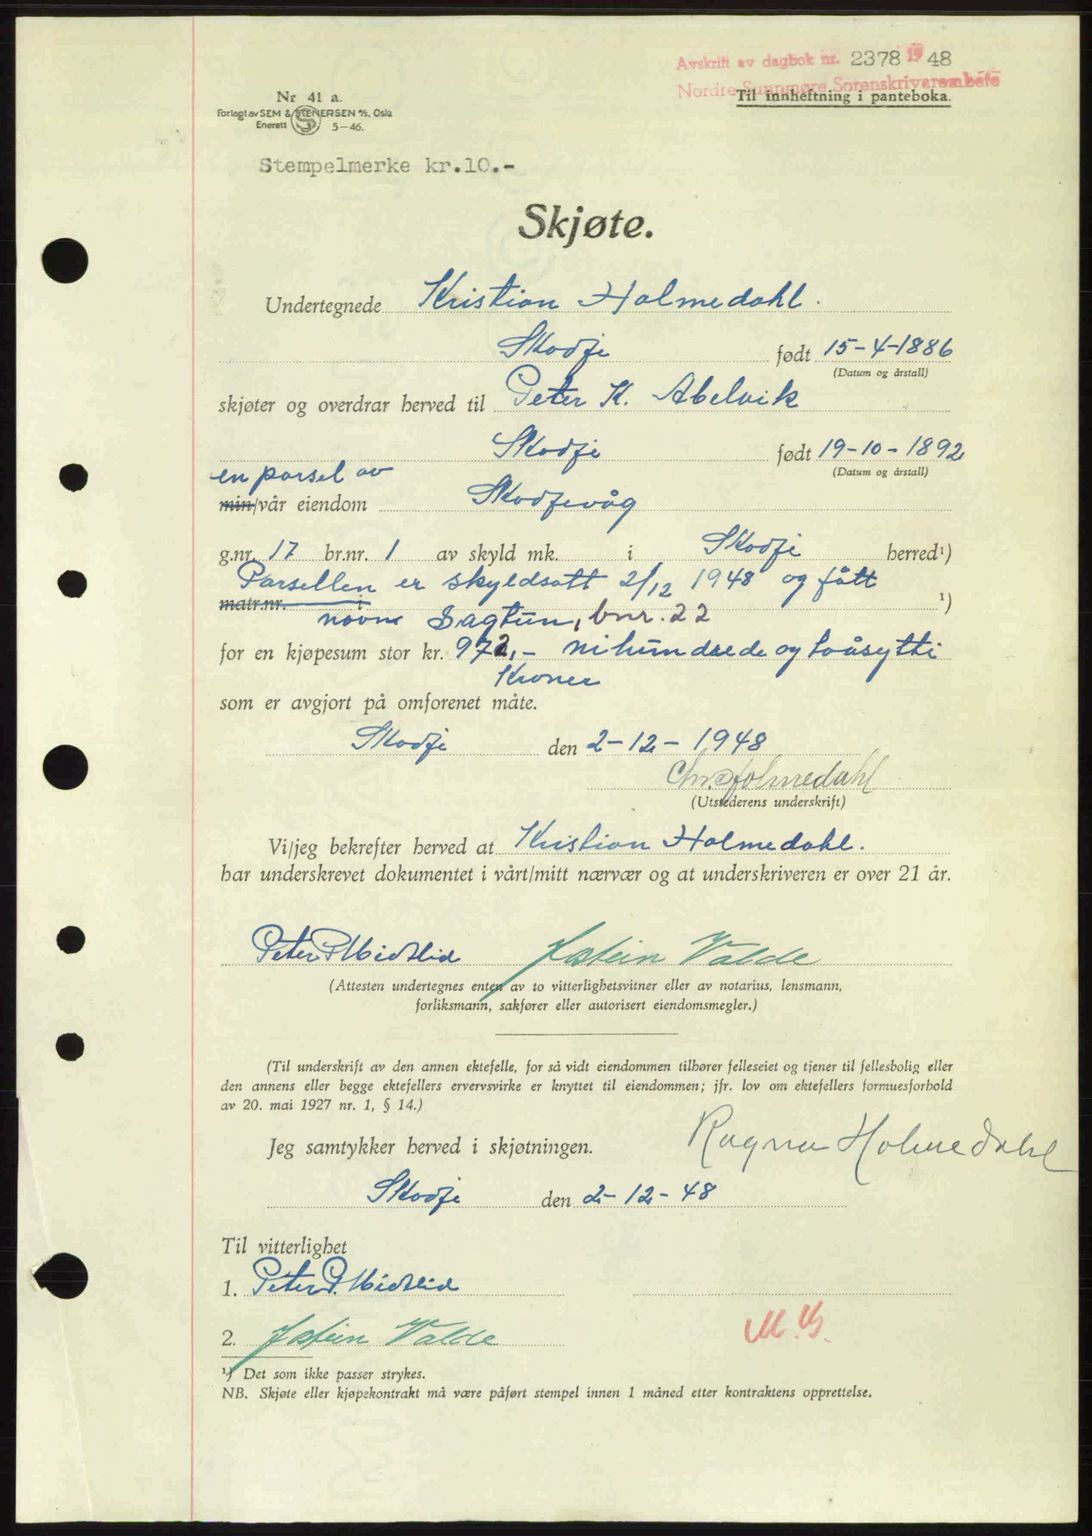 Avskrift av dagbok nr. 2378 1948
Nordre Sunnmøre Sorenskriverembete
Til innheftning i panteboka.
Nr 41 a.
Forlagt av SEM & STENERSEN A/S, Oslo
Enerett 5—46.
Stempelmerke kr.10.-
Skjøte.
Undertegnede Kristian Holmedahl.
Skodje født 15-4-1886
(Datum og årstall)
skjøter og overdrar herved til Peter K. Abelvik
Skodje født 19-10-1892
(Datum og årstall)
en parsel av
min/vår eiendom Skodjevåg
g.nr. 17 br.nr. 1 av skyld mk. i Skodje herred¹)
Parsellen er skyldsatt 2/12 1948 og fått
matr.nr. i ¹)
navne Sagtun, bnr. 22
for en kjøpesum stor kr. 972,- nihundrede og toåsytti
Kroner
som er avgjort på omforenet måte.
Skodje den 2-12-1948
Chr. Holmedahl
(Utstederens underskrift)
Vi/jeg bekrefter herved at Kristian Holmedahl.
har underskrevet dokumentet i vårt/mitt nærvær og at underskriveren er over 21 år.
Peter P. Midtlid Jostein Valde
(Attesten undertegnes enten av to vitterlighetsvitner eller av notarius, lensmann,
forliksmann, sakfører eller autorisert eiendomsmegler.)
(Til underskrift av den annen ektefelle, for så vidt eiendommen tilhører felleseiet og tjener til fellesbolig eller
den annens eller begge ektefellers ervervsvirke er knyttet til eiendommen; jfr. lov om ektefellers formuesforhold
av 20. mai 1927 nr. 1, § 14.)
Jeg samtykker herved i skjøtningen. Ragna Holmedahl
Skodje den 2-12-48
Til vitterlighet
1. Peter P. Midtlid
2. Jostein Valde
¹) Det som ikke passer strykes.
NB. Skjøte eller kjøpekontrakt må være påført stempel innen 1 måned etter kontraktens opprettelse.